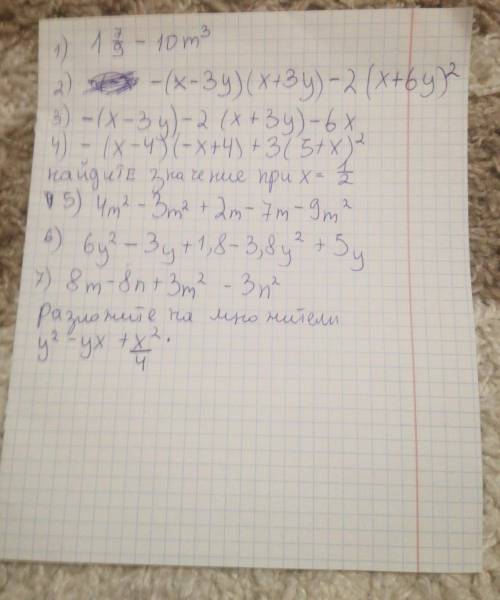 1) 1 7/9 - 10m³
2) -(x-3y)(x+3y)-2(x+6y)²
3) -(x-3y)-2(x+3y)-6x
4) -(x-4)(-x+4)+3(5+x)²
найдите значение при x = 1/2
5) 4m² - 3m² + 2m - 7m - 9m²
6) 6y² - 3y + 1,8 - 3,8y² + 5y
7) 8m - 8n + 3m² - 3n²
разложите на множители
y² - yx + x²/4.